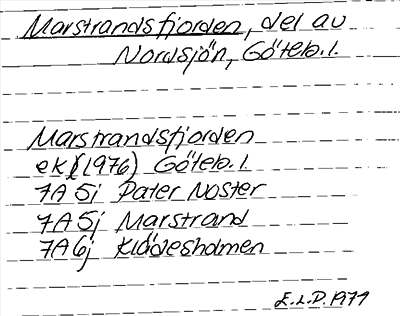 Marstrandsfjorden, del av
Nordsjön, Göteb. l.
Marstrandsfjorden
ek (1976) Göteb. l.
7A 5i Pater Noster
7A 5j Marstrand
7A 6j Klädesholmen
E.L.D. 1977